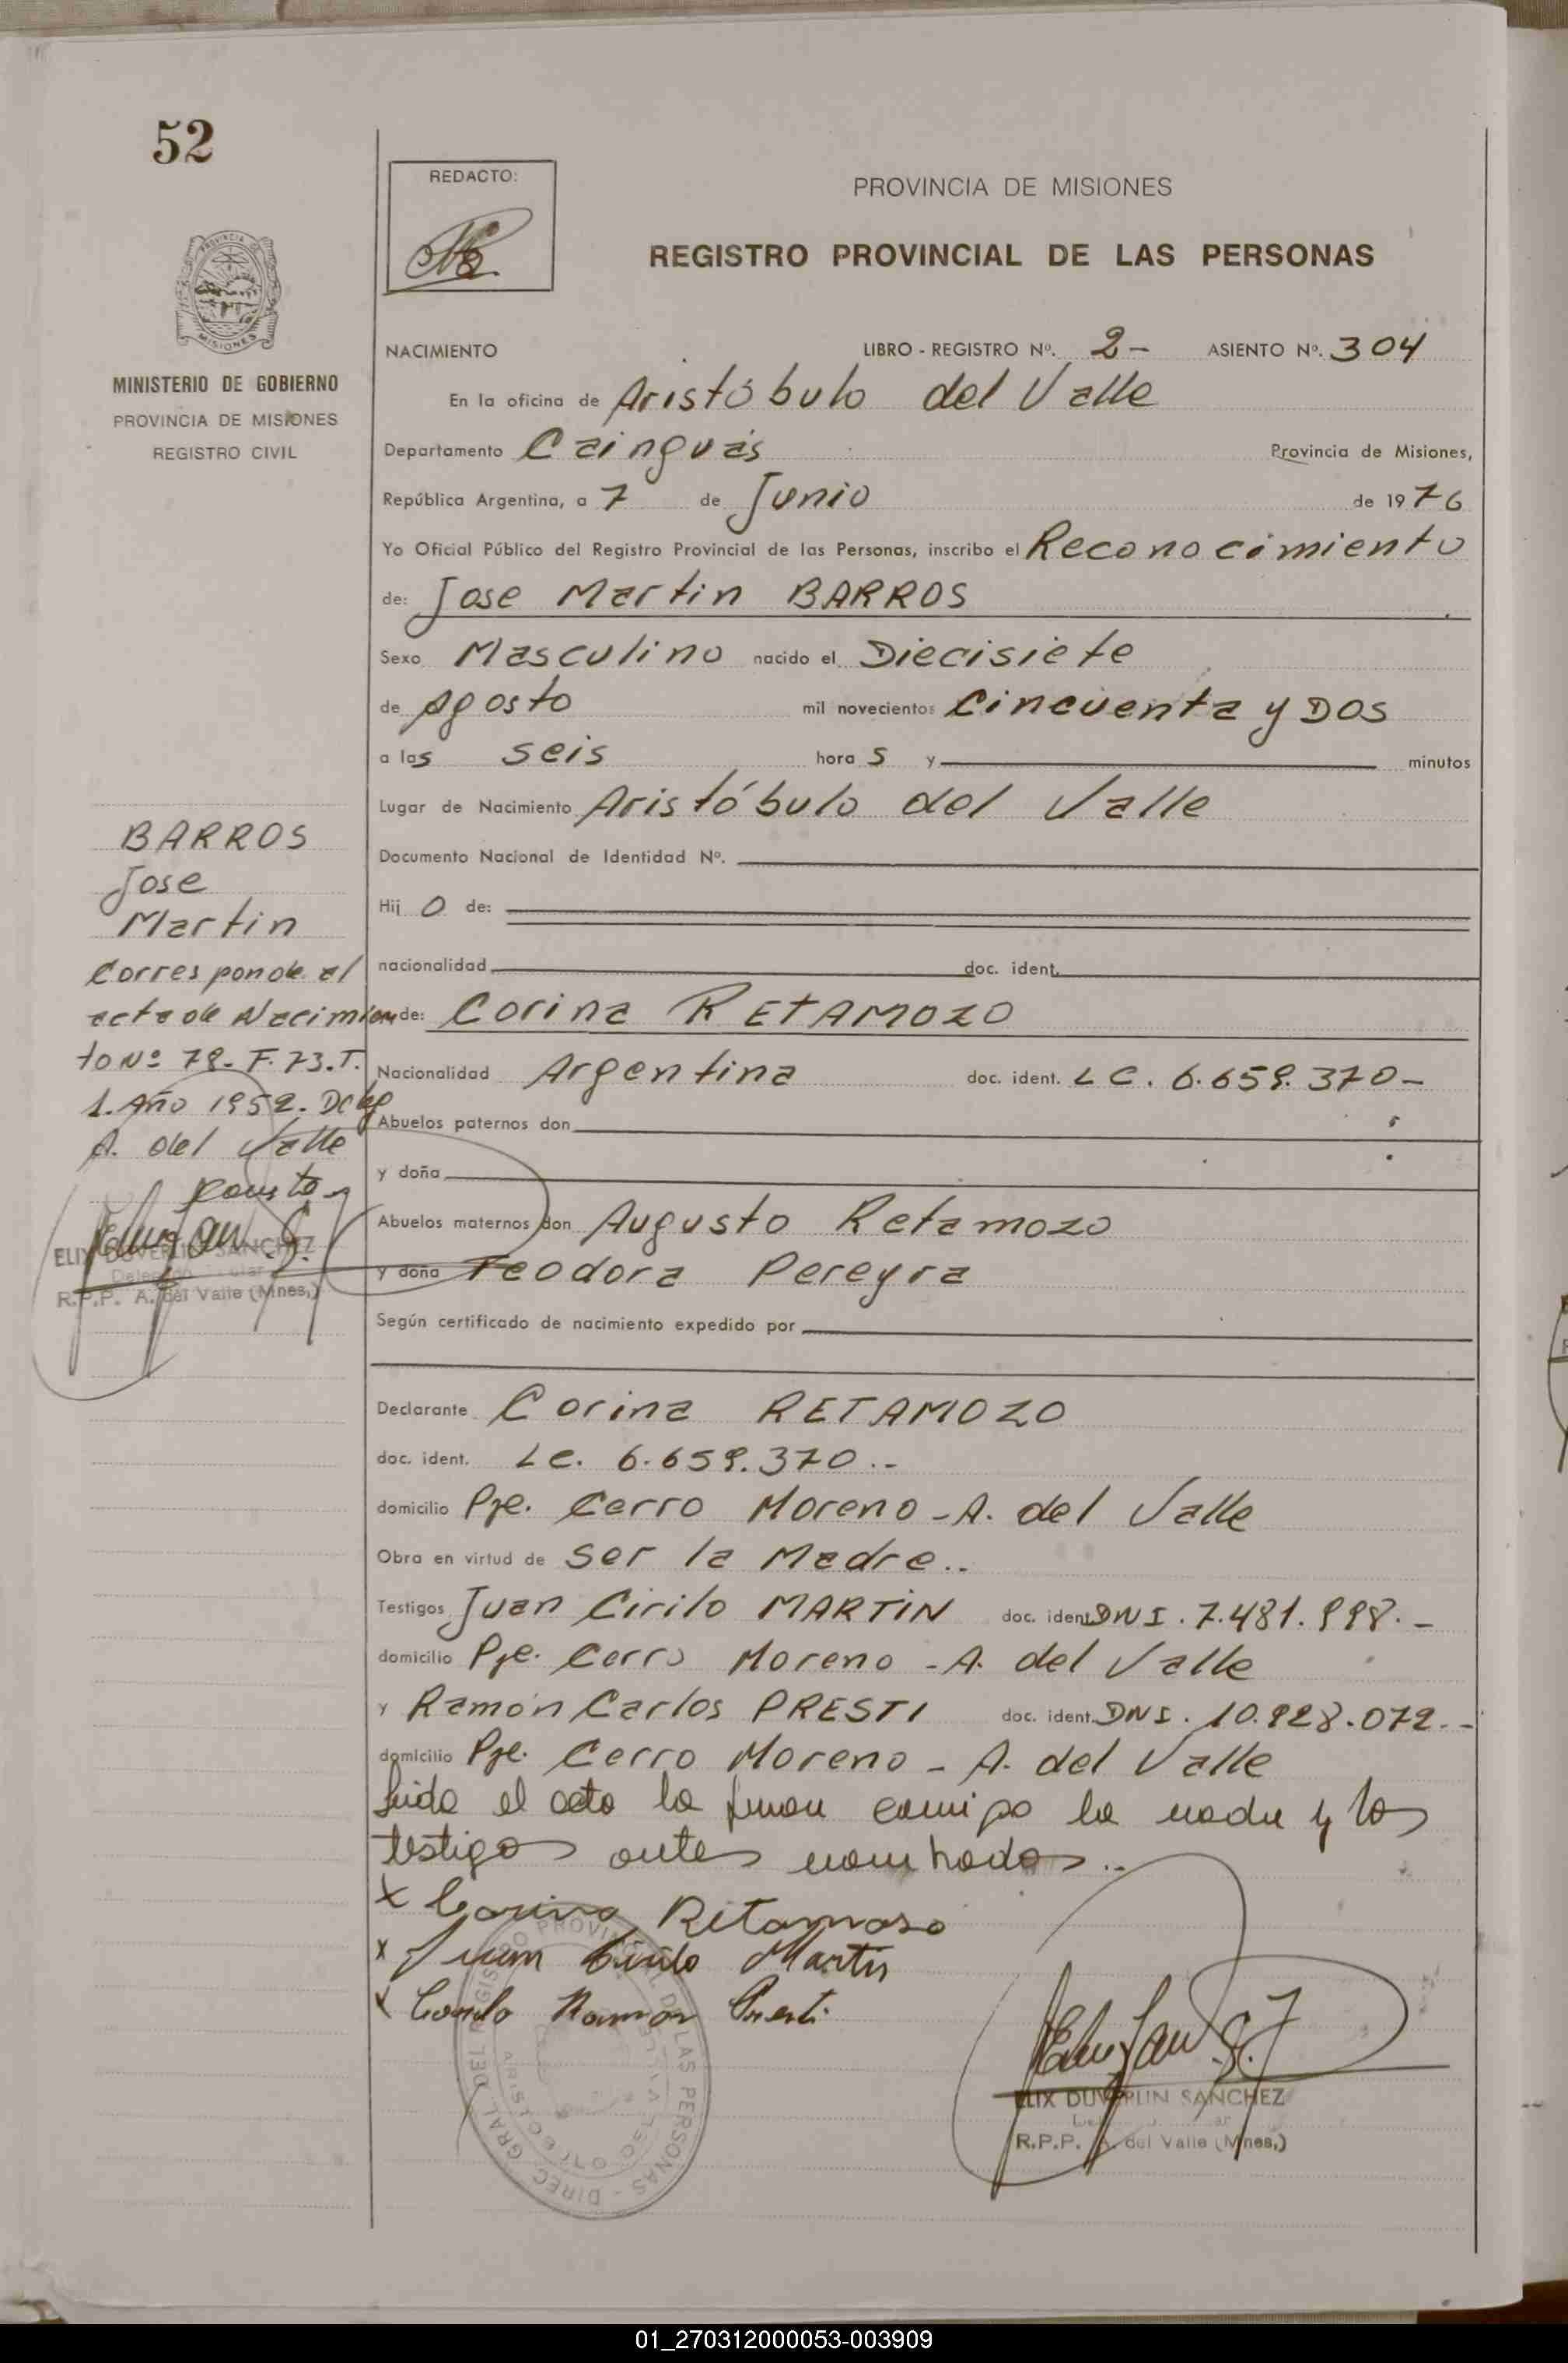 52
REDACTO:
PROVINCIA DE MISIONES
REGISTRO PROVINCIAL DE LAS PERSONAS
PROVINCIA DE
MISIONES
MINISTERIO DE GOBIERNO
PROVINCIA DE MISIONES
REGISTRO CIVIL
NACIMIENTO LIBRO - REGISTRO Nº. 2- ASIENTO Nº. 304
En la oficina de Aristóbulo del Valle
Departamento Cainguás Provincia de Misiones,
República Argentina, a 7 de Junio de 1976
Yo Oficial Público del Registro Provincial de las Personas, inscribo el Reconocimiento
de: Jose Martin BARROS
Sexo Masculino nacido el Diecisiete
de Agosto mil novecientos Cincuenta y DOS
a las seis horas y minutos
Lugar de Nacimiento Aristóbulo del Valle
Documento Nacional de Identidad Nº.
Hijo de:
nacionalidad doc. ident.
de: Corina RETAMOZO
Nacionalidad Argentina doc. ident. LC. 6.659.370-
Abuelos paternos don
y doña
Abuelos maternos don Augusto Retamozo
y doña Teodora Pereyra
Según certificado de nacimiento expedido por
BARROS
Jose
Martin
Corresponde al
acta de Nacimien
to Nº 78. F. 73. T.
1. Año 1952.
A. del Valle
ELIX DUVERLIN SANCHEZ
R.P.P. A. del Valle (Mnes.)
Declarante Corina RETAMOZO
doc. ident. LC. 6.659.370.-
domicilio Pje. Cerro Moreno - A. del Valle
Obra en virtud de ser la Madre..
Testigos Juan Cirilo MARTIN doc. ident. DNI. 7.481.998.-
domicilio Pje. Cerro Moreno - A. del Valle
y Ramón Carlos PRESTI doc. ident. DNI. 10.928.072.-
domicilio Pje. Cerro Moreno - A. del Valle
Leida el acta la firman conmigo la madre y los
testigos antes nombrados..
x Corina Retamoso
x Juan Cirilo Martin
x Carlo Ramon Presti
REGISTRO PROVINCIAL DE LAS PERSONAS - DIREC. GRAL. DEL
ELIX DUVERLIN SANCHEZ
R.P.P. A. del Valle (Mnes.)
01_270312000053-003909